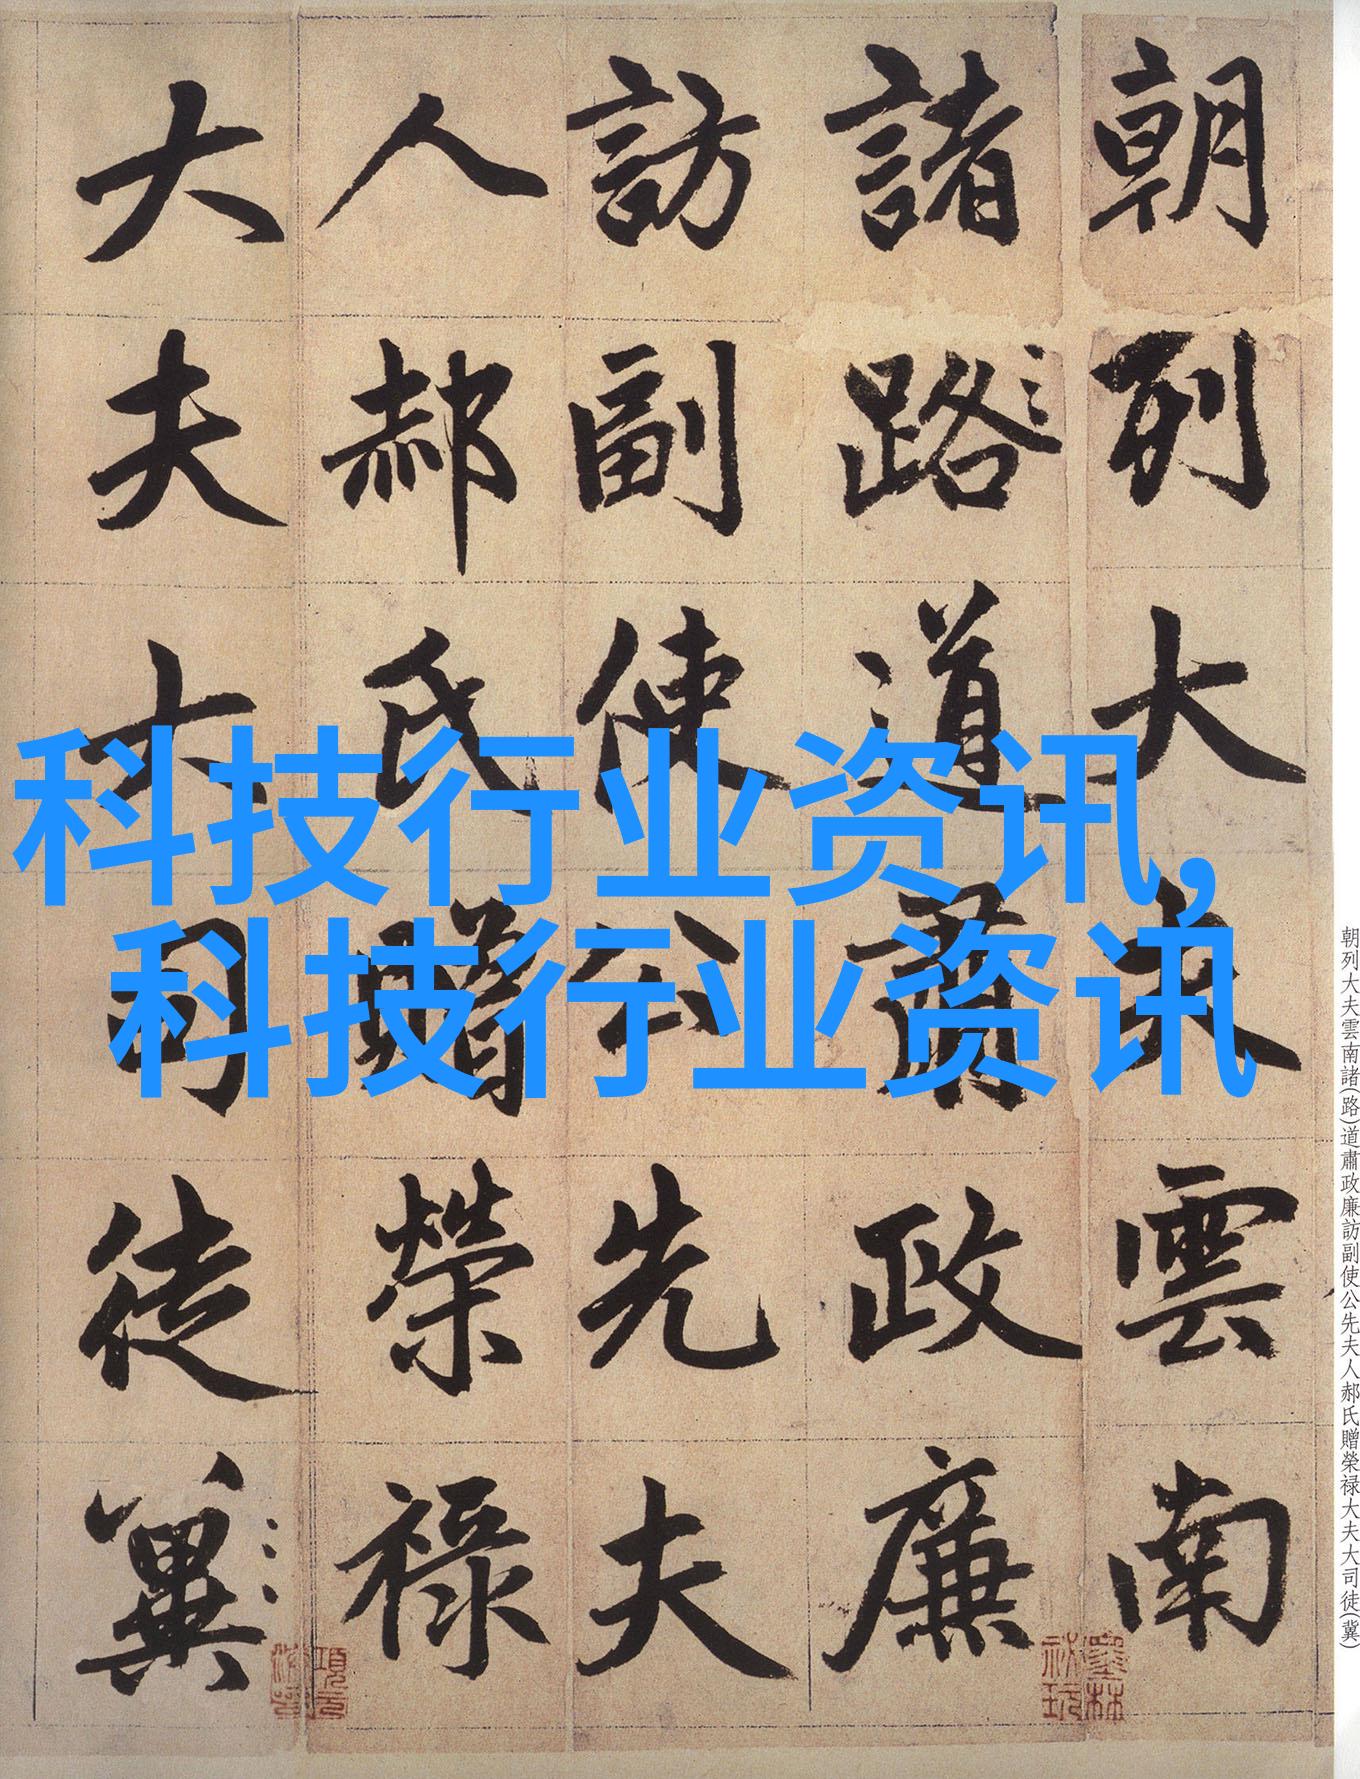 朝列大夫雲南
諸路道肅政廉
訪副使公先夫
人郝氏贈榮禄
大夫大司徒冀
科技行业资讯,
科技行业资讯
朝列大夫雲南諸(路)道肅政廉訪副使公先夫人郝氏贈榮禄大夫大司徒(冀)